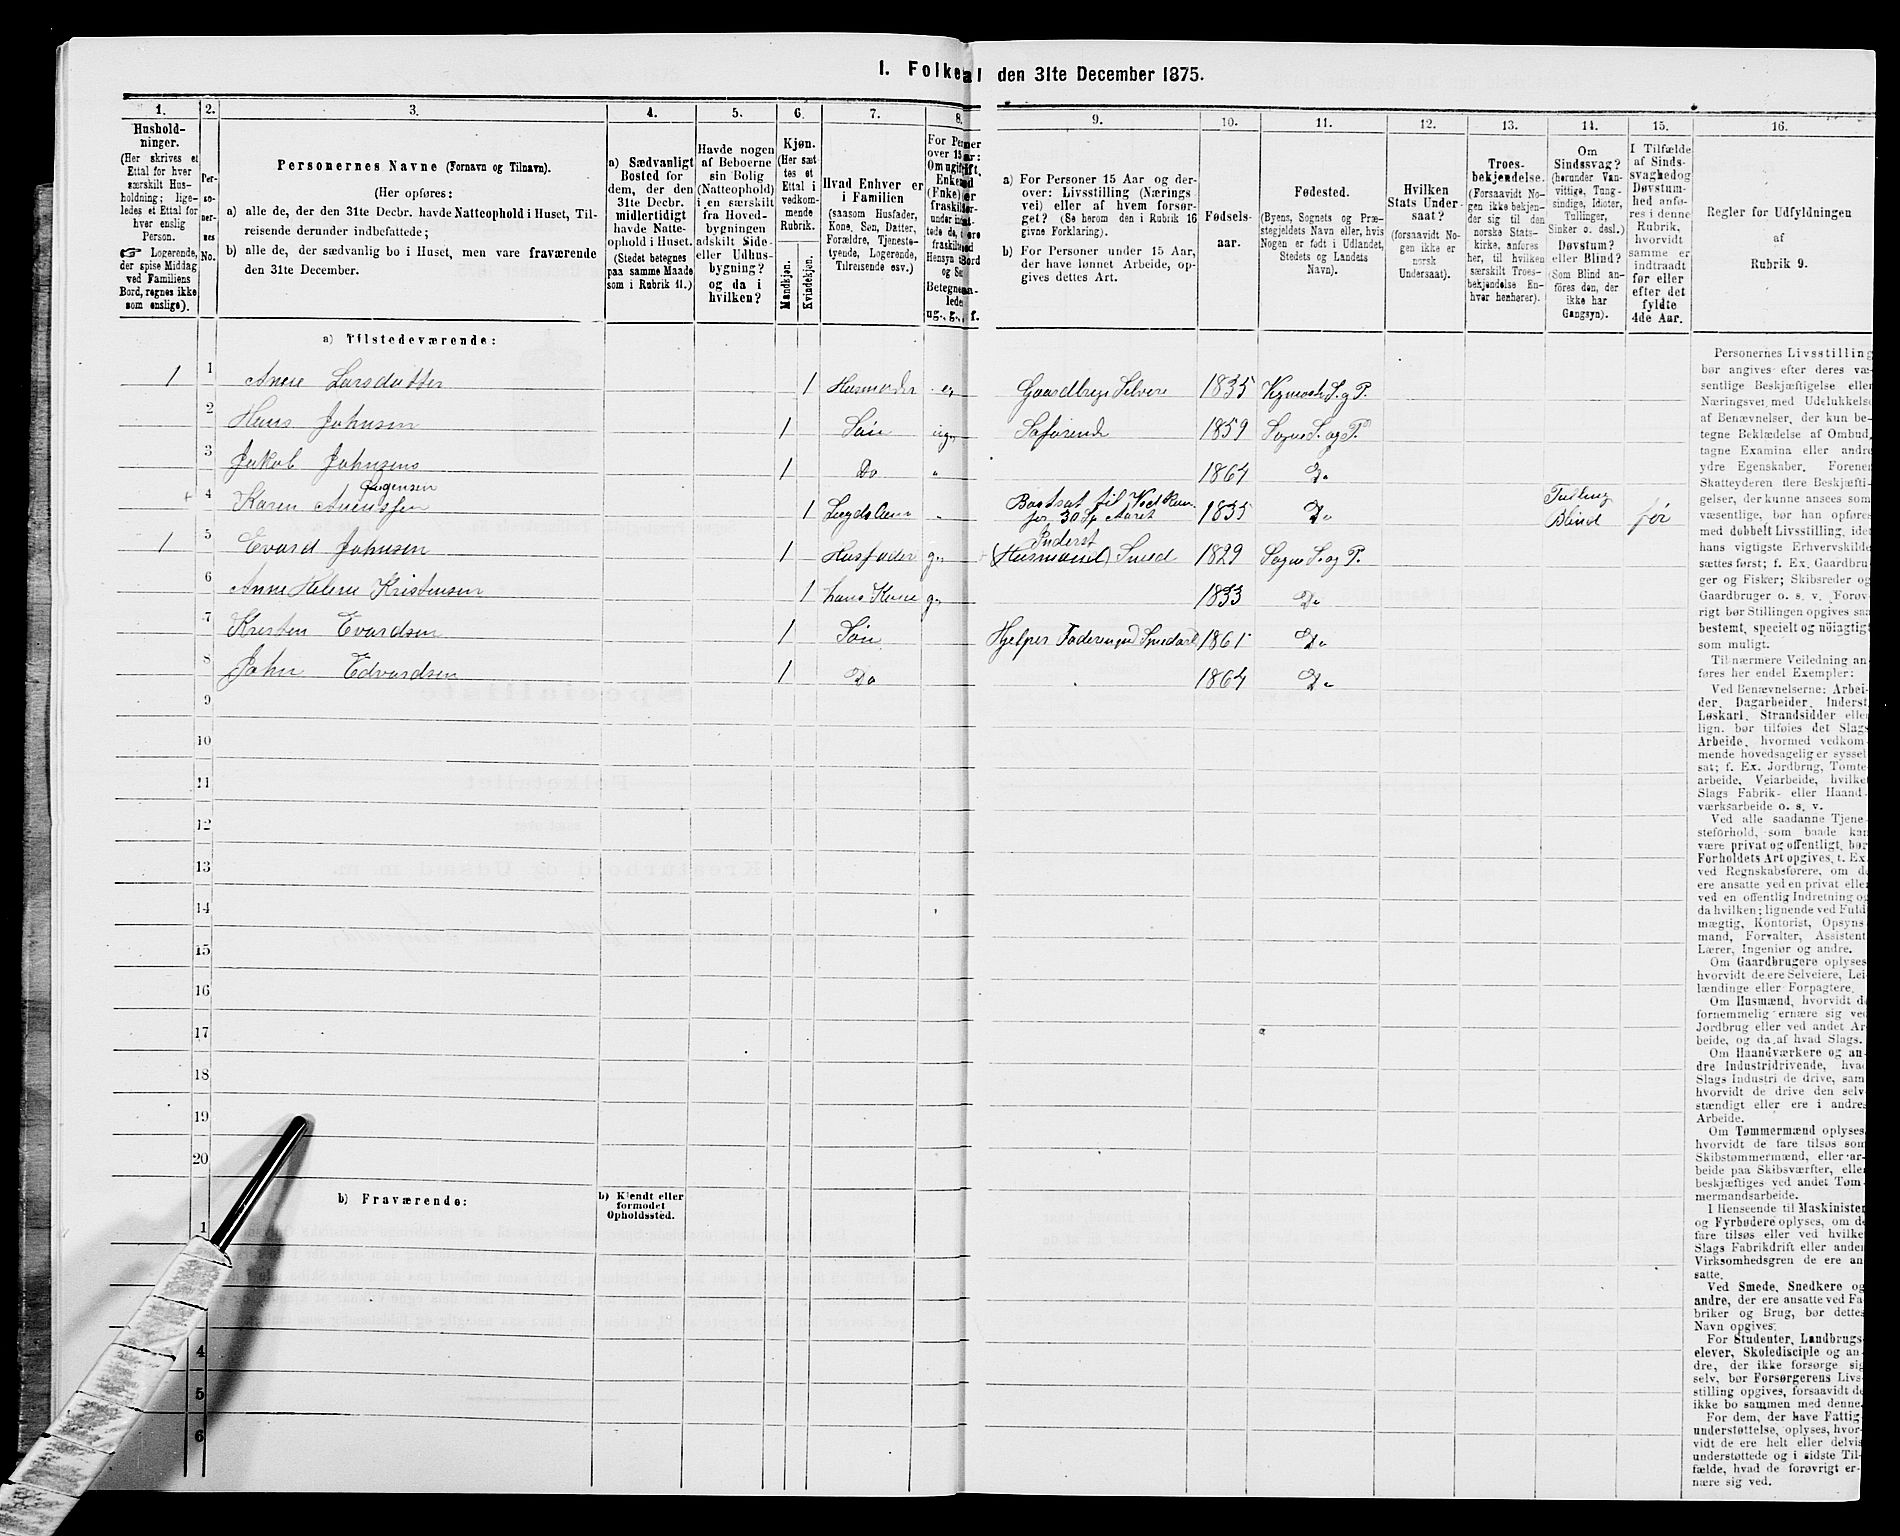 1. Folketal den 31te December 1875.
1. 2. 3. 4. 5. 6. 7. 8. 9. 10. 11. 12. 13. 14. 15. 16.
Hushold-
ninger.
(Her skrives et
Ettal for hver
særskilt Hus-
holdning; lige-
ledes et Ettal for
hver enslig
Person.
☞ Logerende,
der spise Middag
ved Familiens
Bord, regnes ikke
som enslige).
Per-
so-
ner-
nes
No.
Personernes Navne (Fornavn og Tilnavn).
(Her opføres:
a) alle de, der den 31te Decbr. havde Natteophold i Huset, Til-
reisende derunder indbefattede;
b) alle de, der sædvanlig bo i Huset, men vare fraværende
den 31te December.
a) Sædvanligt
Bosted for
dem, der den
31te Decbr.
midlertidigt
havde Natte-
ophold i Huset.
(Stedet betegnes
paa samme Maade
som i Rubrik 11.)
Havde nogen
af Beboerne
sin Bolig
(Natteophold)
i en særskilt
fra Hoved-
bygningen
adskilt Side-
eller Udhus-
bygning?
og da i
hvilken?
Kjøn.
(Her sæt
tes et
Ettal i
vedkom-
mende
Rubrik.
Mandkjøn.
Kvindekjøn.
Hvad Enhver er
i Familien
(saasom Husfader,
Kone, Søn, Datter,
Forældre, Tjeneste-
tyende, Logerende,
Tilreisende osv.)
ug., g., f.
a) For Personer 15 Aar og der-
over: Livsstilling (Nærings
vei) eller af hvem forsør-
get? (Se herom den i Rubrik 16
givne Forklaring).
b) For Personer under 15 Aar,
der have lønnet Arbeide, op-
gives dettes Art.
Fødsels-
aar.
Fødested.
(Byens, Sognets og Præ-
stegjeldets Navn eller, hvis
Nogen er født i Udlandet,
Stedets og Landets
Navn).
Hvilken
Stats Under-
saat?
(forsaavidt No-
gen ikke er
norsk
Undersaat).
Troes-
bekjendelse.
(Forsaavidt No-
gen ikke bekjen-
der sig til den
norske Stats-
kirke, anføres
her, til hvilken
særskilt Troes-
bekjendelse En-
hver henhører).
Om
Sindssvag?
(herunder Van-
vittige, Tung-
sindige, Idioter,
Tullinger,
Sinker o. desl.)
Døvstum?
eller Blind?
(Som Blind an-
føres den, der
ikke har
Gangsyn).
I Tilfælde
af Sinds-
svaghed og
Døvstum-
hed anfø-
res i denne
Rubrik,
hvorvidt
samme er
indtraadt
før eller
efter det
fyldte
4de Aar.
Regler for Udfyldningen
af
Rubrik 9.
a) Tilstedeværende:
1 1 Anne Larsdatter 1 Husmoder Gaardbrug Selveie 1835 S. og P.
2 Hans Johnsen 1 Søn ug. Søfarende 1859 Sogne S. og P.
3 Jakob Johnsens 1 Do " 1864 Do
Jørgensen
4 Karen 1 " Bortsat til
for 30 Sp Aaret 1835 Do Tulling
Blind før
Inderst
1 5 Evard Johnsen 1 Husfader g. (Husmand) Smed 1829 Sogne S. og P.
6 Anne Helene Kristensen 1 hans Kone g. 1833 Do
7 Kristen Evardsen 1 Søn Hjelper Faderen 1861 Do
8 John Edvardsen 1 Do 1864 Do
9
10
11
12
13
14
15
16
17
18
19
20
b) Fraværende:
b) Kjendt eller
formodet
Opholdssted.
1
4
5
6
Personernes Livsstilling
bør angives efter deres væ-
sentlige Beskjæftigelse eller
Næringsvei med Udelukkelse
af Benævnelser, der kun be-
tegne Beklædelse af Ombud,
tagne Examina eller andre
ydre Egenskaber. Forener
Skatteyderen flere Beskjæfti-
gelser, der kunne ansees som
væsentlige, bør han opføres
med dobbelt Livsstilling, idet
hans vigtigste Erhvervskilde
sættes først; f. Ex. Gaardbru-
ger og Fisker; Skibsreder og
Gaardbruger o. s. v. Forøv-
rigt bør Stillingen opgives saa
bestemt, specielt og nøiagtigt
som muligt.
Til nærmere Veiledning an-
føres her endel Exempler:
Ved Benævnelserne: Arbei-
der, Dagarbeider, Inderst,
Løskarl, Strandsidder eller
lign. bør tilføies det Slags
Arbeide, hvormed vedkom-
mende hovedsagelig er syssel-
sat; f. Ex. Jordbrug, Tomte-
arbeide, Veiarbeide, hvilket
Slags Fabrik- eller Haand-
værksarbeide o. s. v.
Ved alle saadanne Tjene-
steforhold, som baade kan
være privat og offentligt, bør
Forholdets Art opgives, t. Ex.
ved Regnskabsførere, om de
ere ansatte ved en privat eller
ved en offentlig Indretning og
da hvilken; lignende ved Fuld-
mægtig, Kontorist, Opsyns-
mand, Forvalter, Assistent,
Lærer, Ingeniør og andre.
Om Gaardbrugere oplyses,
hvorvidt de ere Selveiere, Lei-
lændinge eller Forpagtere.
Om Husmænd, hvorvidt de
fornemmelig ernære sig ved
Jordbrug eller ved andet Ar-
beide, og da af hvad Slags.
Om Haandværkere og an-
dre Industridrivende, hvad
Slags Industri de drive, samt
hvorvidt de drive den selv-
stændigt eller ere i andres
Arbeide.
Om Tømmermænd oplyses,
hvorvidt de fare tilsøs som
Skibstømmermænd, eller ar-
beide paa Skibsværfter, eller
beskjæftiges ved andet Tøm-
mermandsarbeide.
I Henseende til Maskinister
og Fyrbødere oplyses, om de
fare tilsøs eller ved hvilken
Slags Fabrikdrift eller anden
Virksomhedsgren de ere an-
satte.
Ved Smede, Snedkere og
andre, der ere ansatte ved Fa-
briker og Brug, bør dettes
Navn opgives.
For Studenter, Landbrugs-
elever, Skoledisciple og an-
dre, der ikke forsørge sig
selv, bør Forsørgerens Livs-
stilling opgives, forsaavidt de
ikke bo sammen med denne.
For dem, der have Fattig-
understøttelse, oplyses, hvor-
vidt de ere helt eller delvis
understøttede og i sidste Til-
fælde, hvad de forøvrigt er-
nære sig ved.